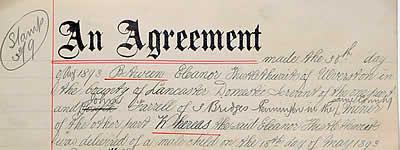 Stamp
An Agreement
made the 30th day
of May 1893 Between Eleanor Thistlethwaite of Ulverston in
the County of Lancaster Domestic Servant of the one part
and John Farrell of 3 Bridges in the County Miner
of the other part Whereas the said Eleanor Thistlethwaite
was delivered of a male child on the 15th day of May 1893